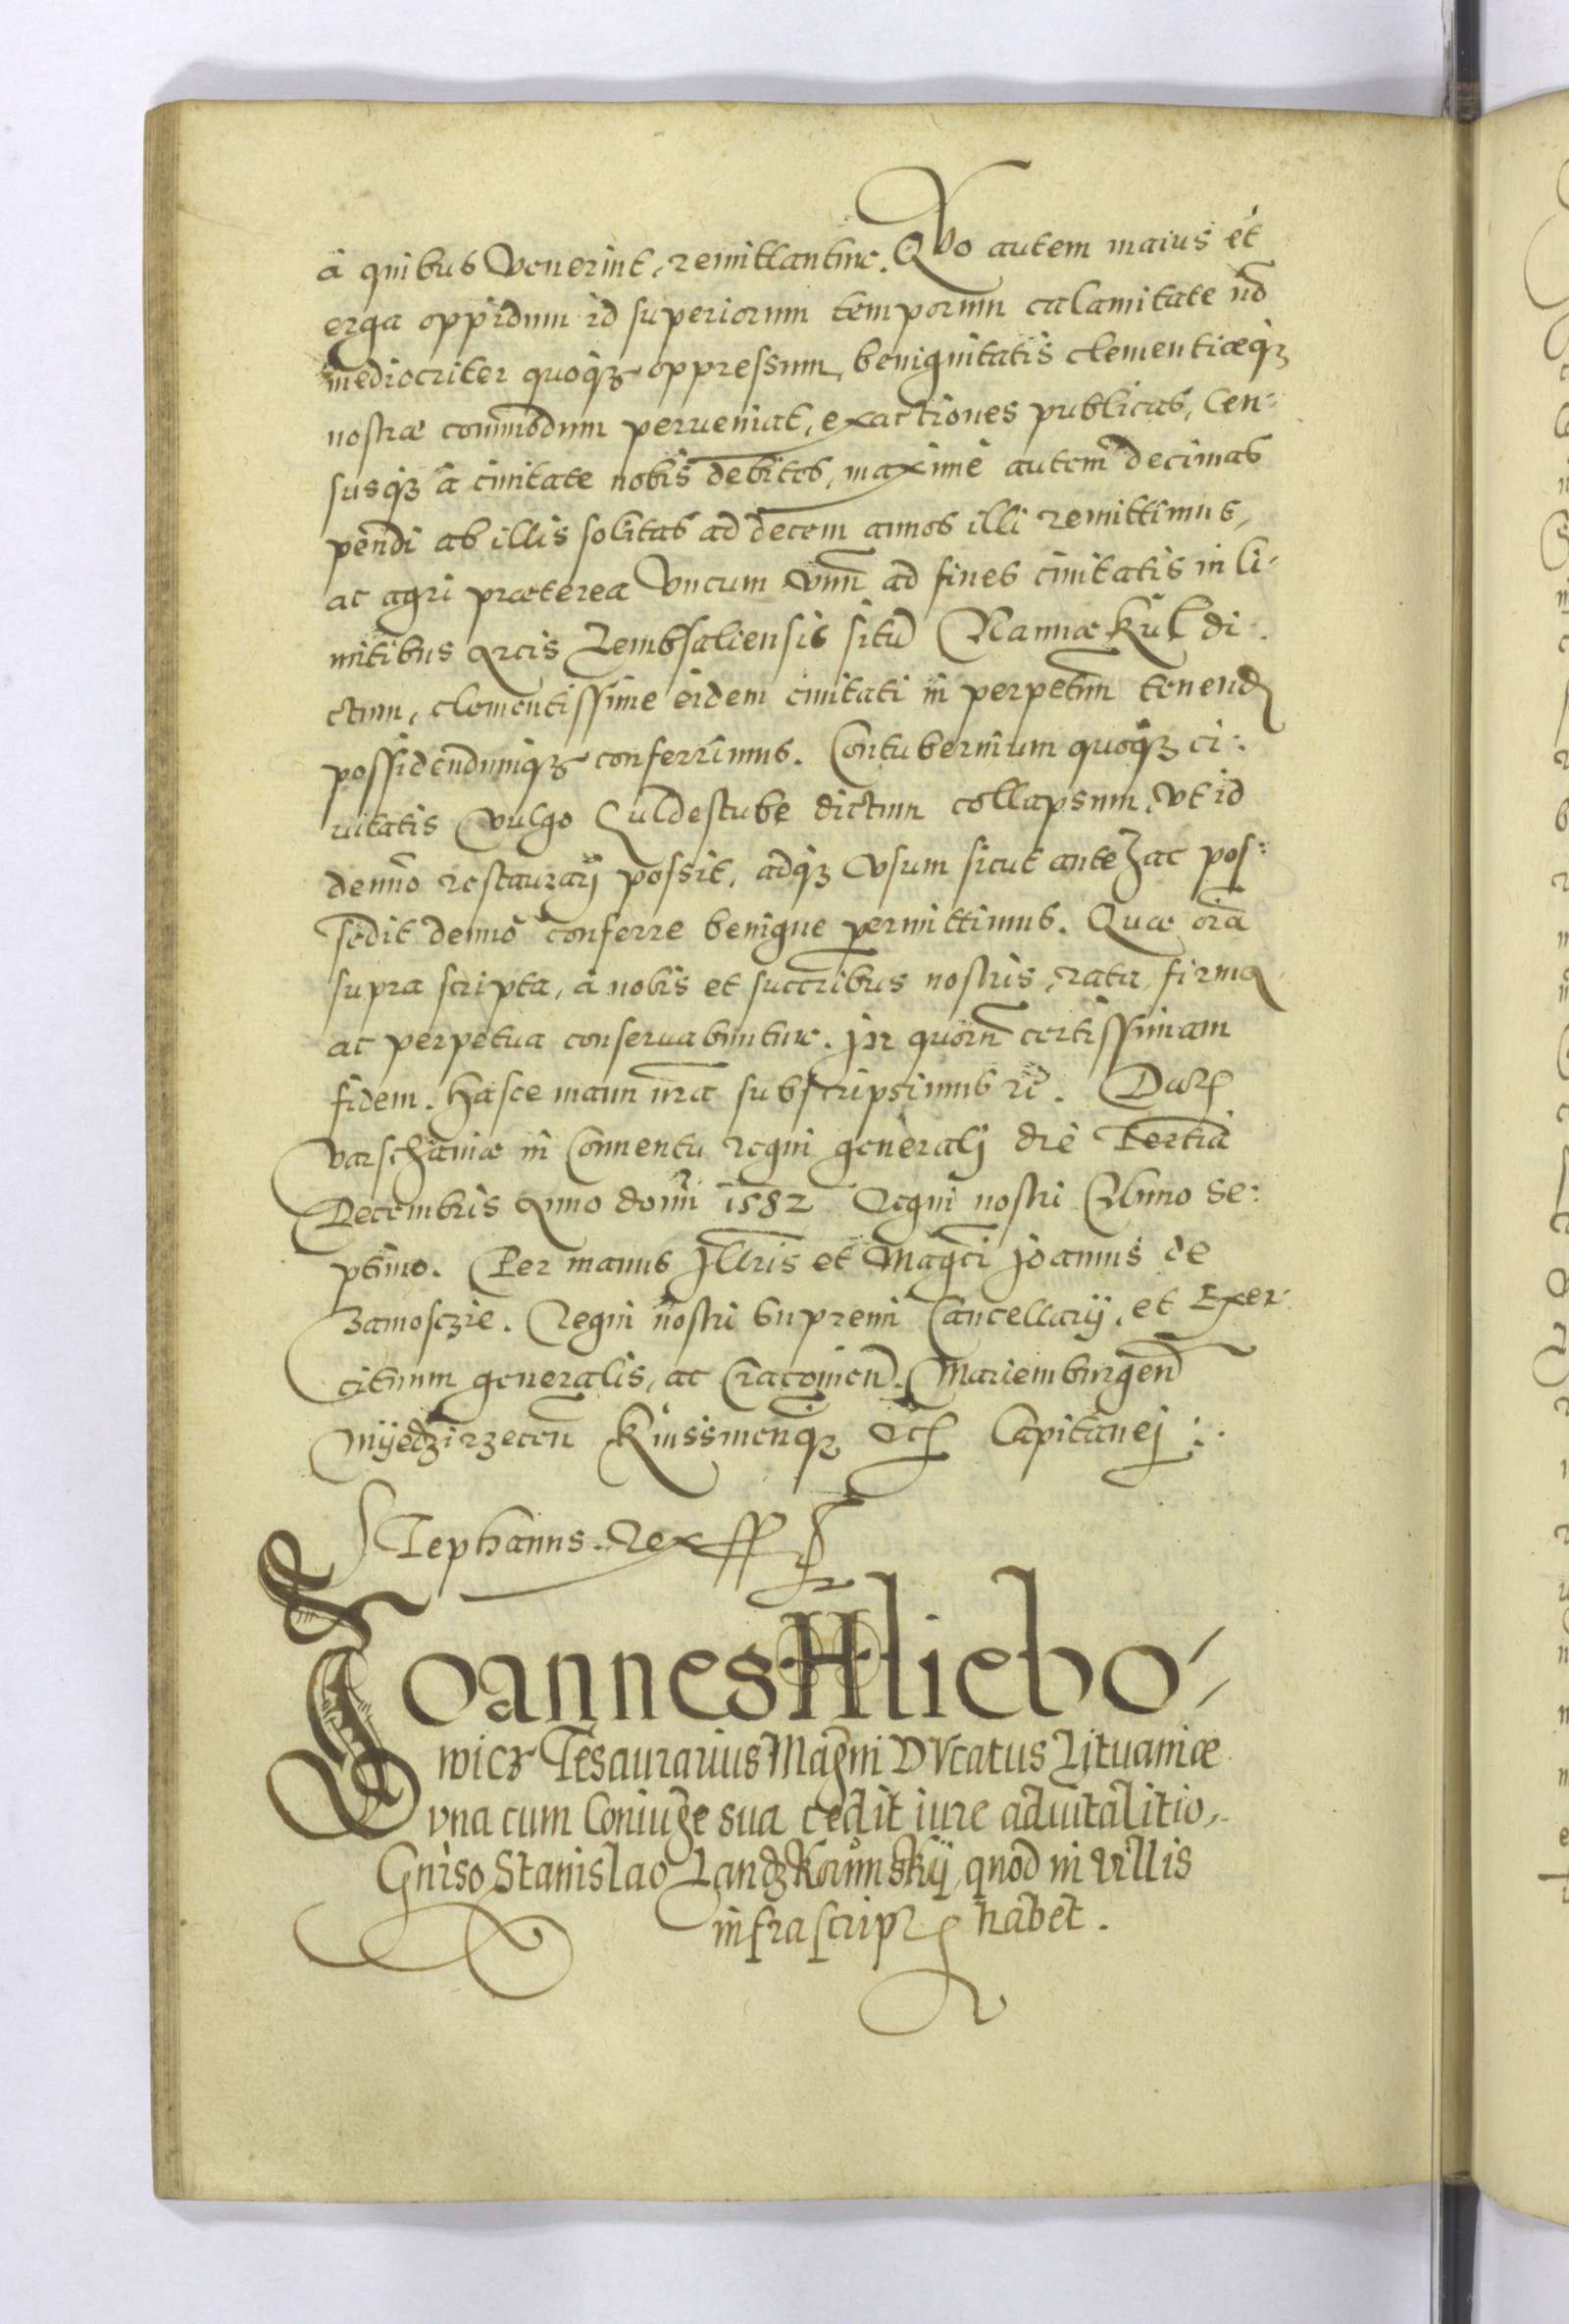 à quibus Venerint, remittantur. Quo autem maius et
erga oppidum id superiorum temporum calamitate nõ
mediocriter quoqꝫ oppressum, benignitatis clementiæqꝫ
nostræ commodum perueniat, exactiones publicas, Cen:
susqꝫ à ciuitate nobis debitos, maximè autem decimas
pendi ab illis solitas ad decem annos illi remittimus,
ac agri præterea Vncum vnũ ad fines ciuitatis in li:
mitibus Arcis Lembsaliensis sitũ Nannæ Kül di:
ctum, clementissime eidem ciuitati in perpetuũ tenend
possidendumqꝫ conferrimus. Contubernium quoqꝫ ci:
uitatis Vulgo Guldestube dictum collapsum, Vt id
denuò restaurarij possit, adqꝫ Vsum sicut antehac pos:
sedit denuò conferre benigne permittimus. Quæ oĩa
supra scripta, à nobis et succrĩbus nostris, rata, firma,
ac perpetua conseruabuntur. In quorũ certissimam
fidem. Hasce manu nr̃a subscripsimus rc̃. Dat
Varschauiæ in Conuentu regni generalj die Tertia
Decembris Anno domĩ 1582 Regni nostri Anno se:
ptimo. Per manus Illr̃is et Magci Joannis de
Zamosczie. Regni nostri Supremi Cancellarij, et Exer:
cituum generalis, ac Cracouien̄. Mariemburgen̄
Myedzirzecen̄ Knissinenqꝫ etc Capitanej:.
Stephanus. Rex sst
Joannes Hliebo-
wicz Tesaurarius Magni DVcatus Lituaniæ
vna cum Coniuge sua cedit iure aduitalitio,
Gnr̃so Stanislao Landzkorunskij, quod in Villis
infrascript habet.